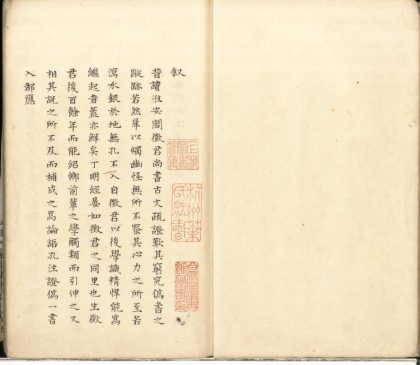 杭州葉氏藏書
叙
昔讀淮安閻徵君尚書古文疏證歎其窮究偽書之
蹤跡若然犀以燭幽怪無所不其心力之所至若
瀉水銀於地無孔不入自徵君以後學識精悍能為
繼起者蓋亦鮮矣丁明經晏如徵君之同里也生徵
君後百餘年而能紹鄉前輩之學觸類而引伸之又
相其說之所不及而補成之為論語孔注證偽一書
入都應